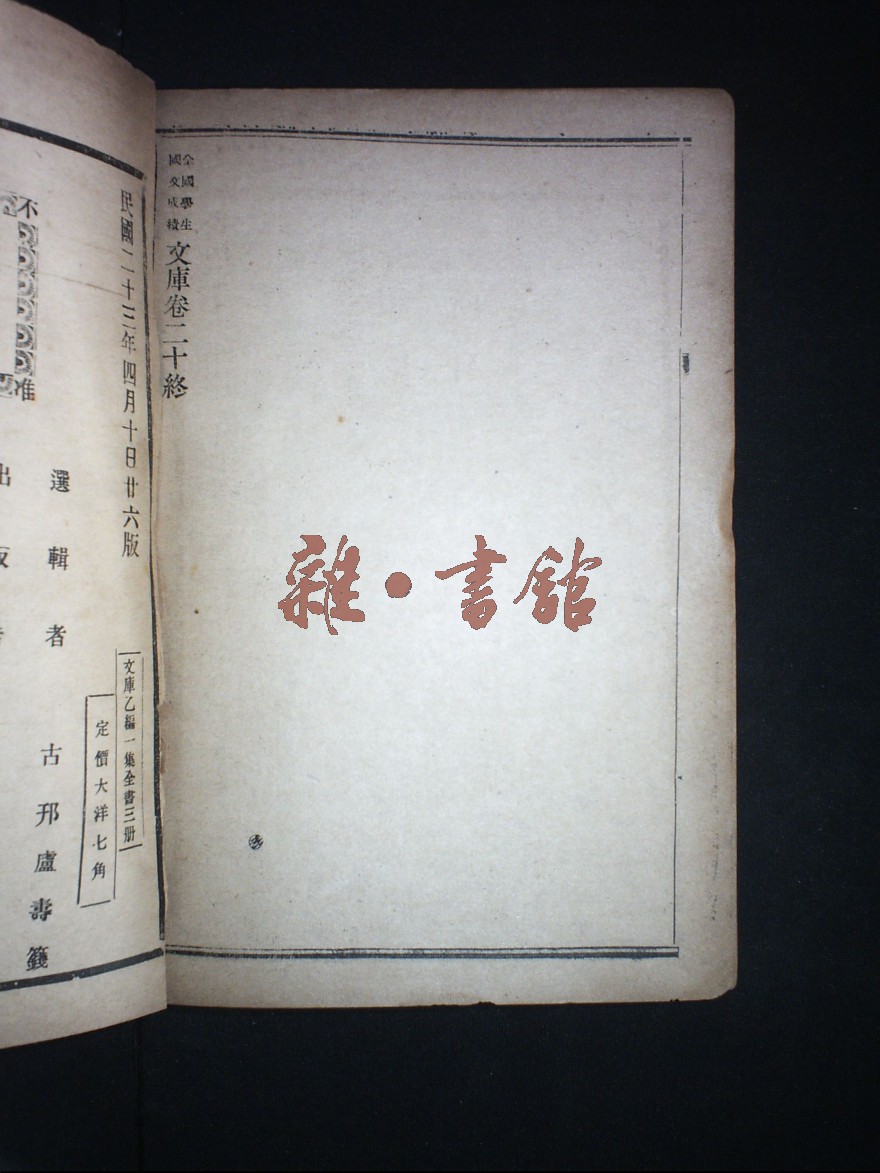 全國學生
國文成績
文庫卷二十終
雜·書館
民國二十三年四月十日廿六版
文庫乙編一集全書三册
定價大洋七角
選輯者 古邗盧壽籛
不
准